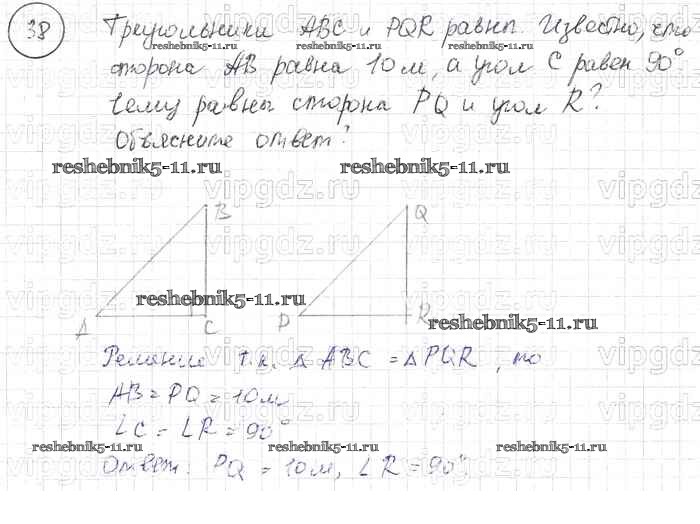 38 Треугольники ABC и PQR равны. Известно, что
reshebnik5-11.ru reshebnik5-11.ru
сторона AB равна 10 м, а угол C равен 90°
Чему равны сторона PQ и угол R?
Объясните ответ?
reshebnik5-11.ru reshebnik5-11.ru
vipgdz.ru vipgdz.ru vipgdz.ru
B Q
vipgdz.ru vipgdz.ru vipgdz.ru
reshebnik5-11.ru
A C P R
reshebnik5-11.ru
Решение т.к. △ ABC = △ PQR, то
vipgdz.ru vipgdz.ru vipgdz.ru
AB = PQ = 10 м
∠C = ∠R = 90°
reshebnik5-11.ru reshebnik5-11.ru reshebnik5-11.ru
Ответ: PQ = 10 м, ∠R = 90°